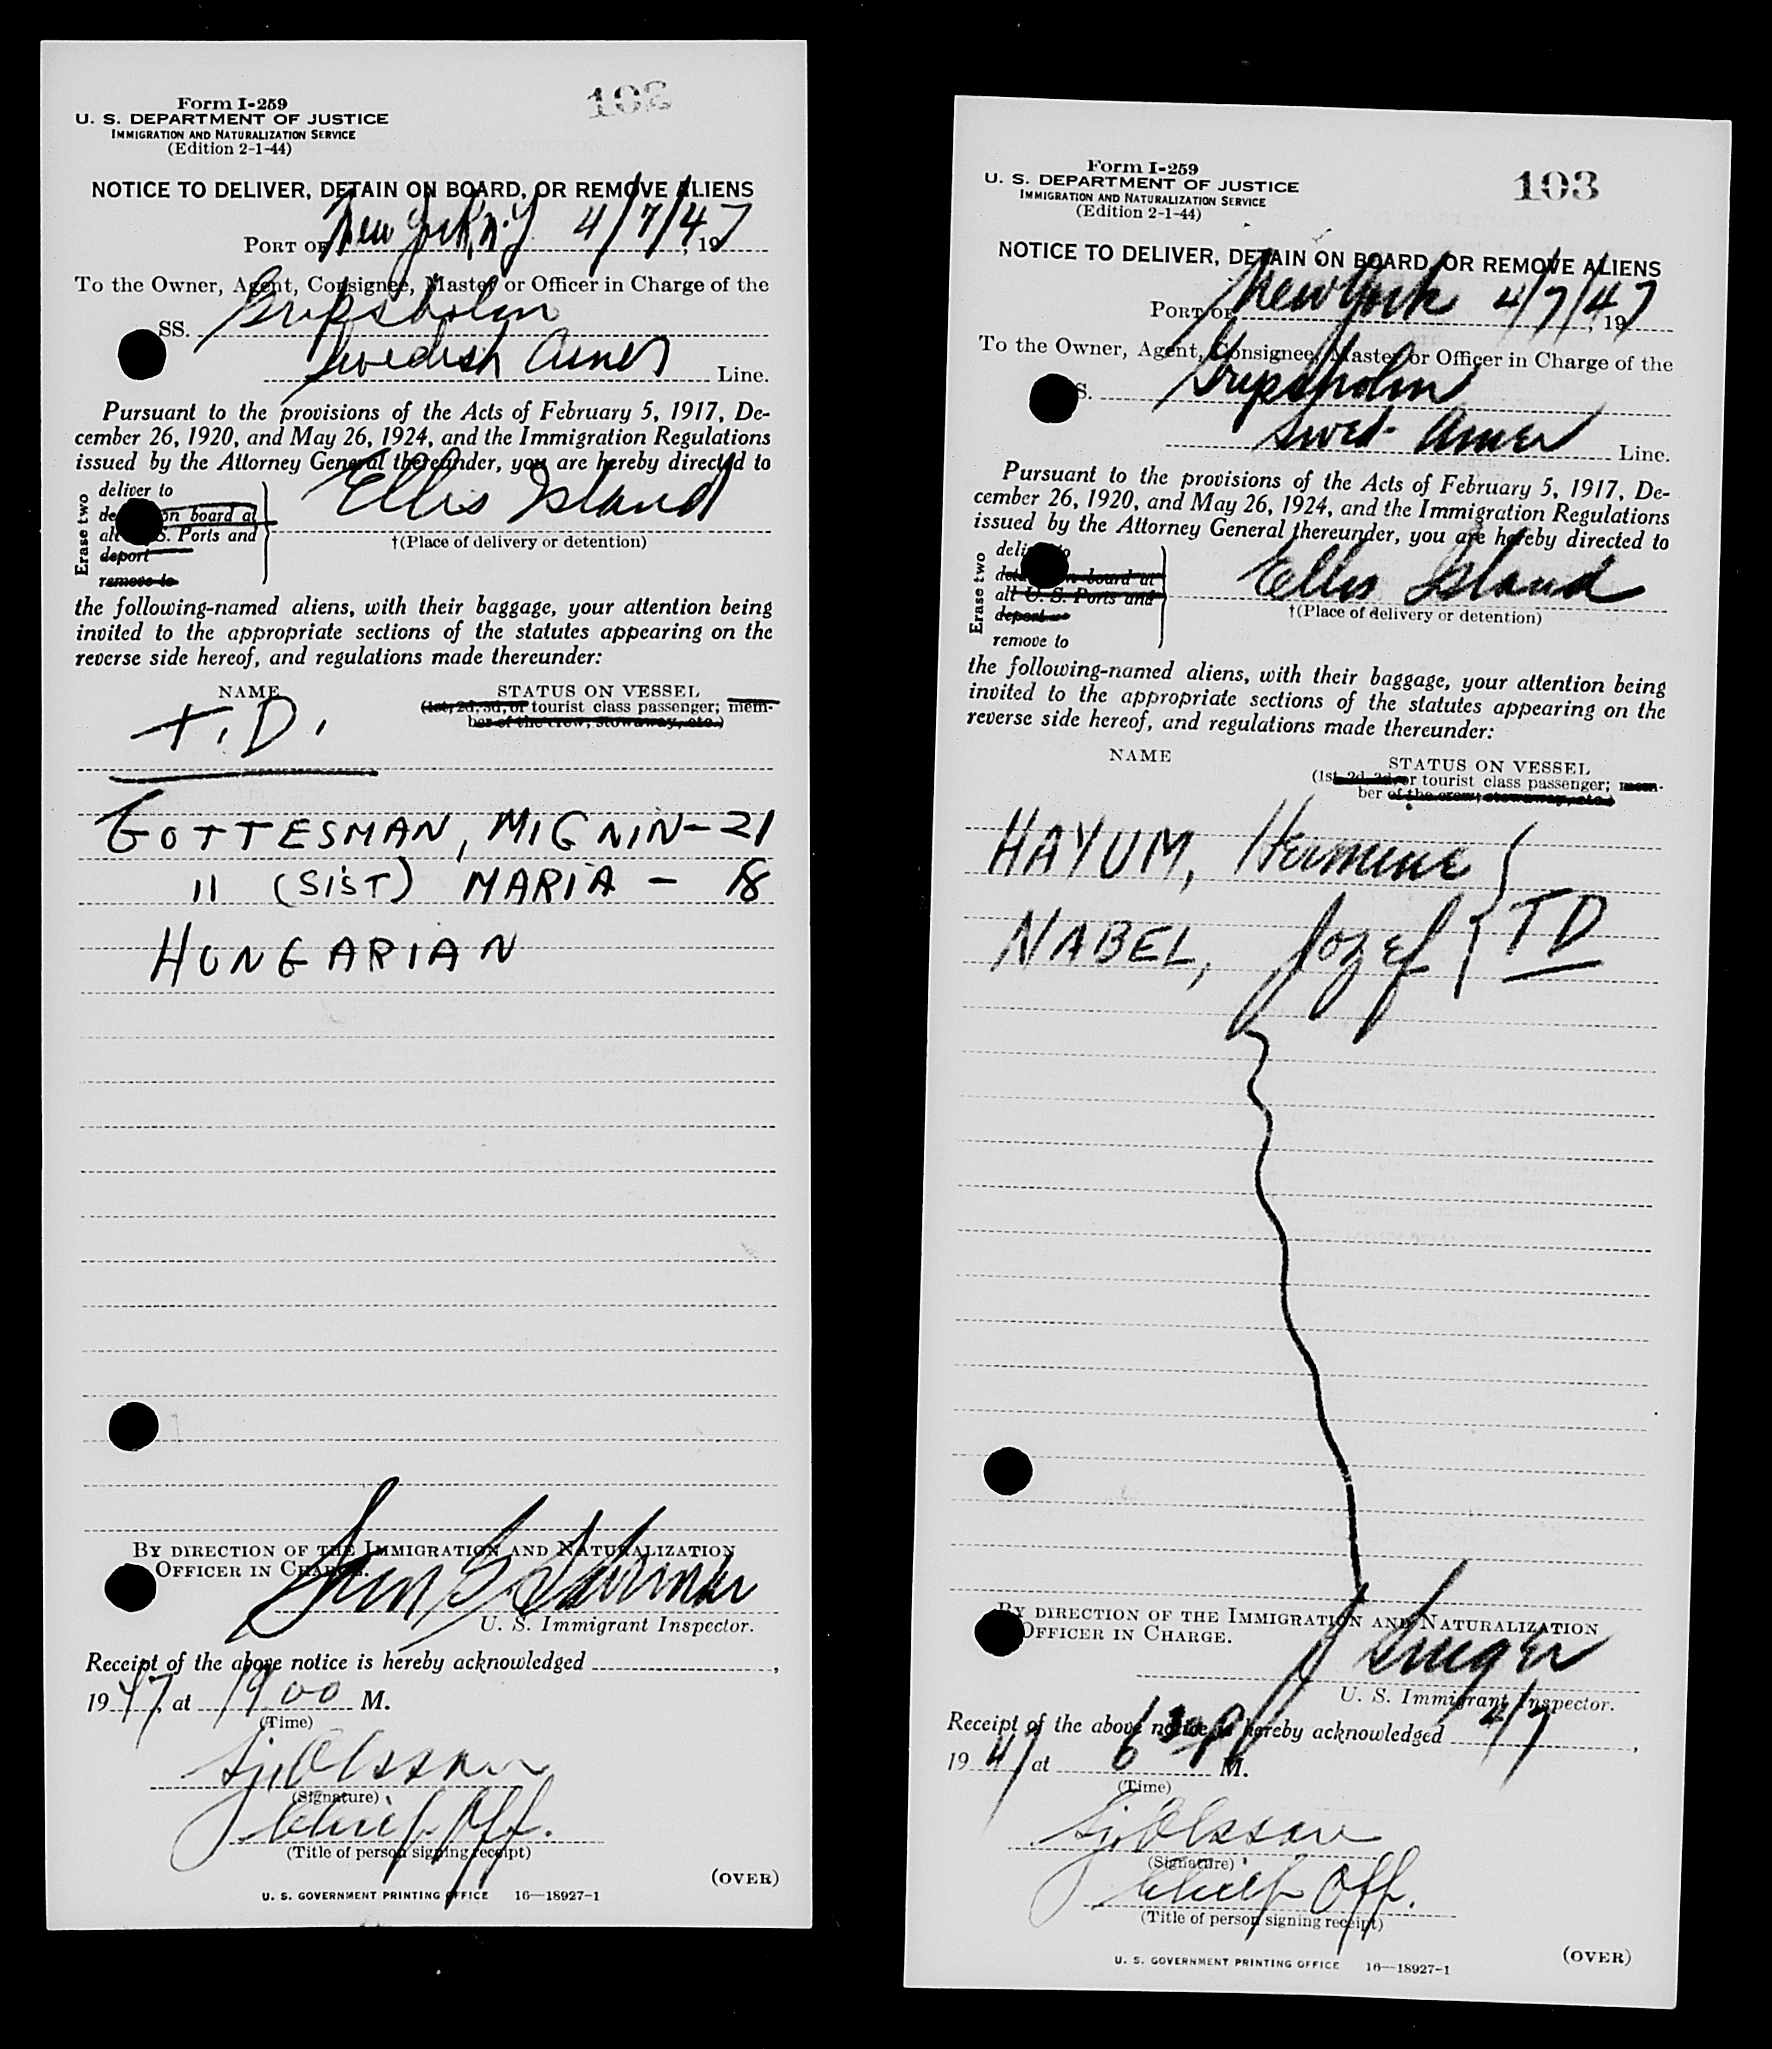 103
Form I-259
U. S. DEPARTMENT OF JUSTICE
IMMIGRATION AND NATURALIZATION SERVICE
(Edition 2-1-44)
NOTICE TO DELIVER, DETAIN ON BOARD, OR REMOVE ALIENS
PORT OF New York N.Y 4/7/47, 19
To the Owner, Agent, Consignee, Master or Officer in Charge of the
SS. Gripsholm
Swedish Amer Line.
Pursuant to the provisions of the Acts of February 5, 1917, De-
cember 26, 1920, and May 26, 1924, and the Immigration Regulations
issued by the Attorney General thereunder, you are hereby directed to
Erase two
deliver to
on board at
all S. Ports and
deport
remove to
Ellis Island
†(Place of delivery or detention)
the following-named aliens, with their baggage, your attention being
invited to the appropriate sections of the statutes appearing on the
reverse side hereof, and regulations made thereunder:
NAME STATUS ON VESSEL
(1st, 2d, 3d, or tourist class passenger; mem-
ber of the crew, stowaway, etc.)
T.D.
GOTTESMAN, MIGNIN - 21
" (SIST) MARIA - 18
HUNGARIAN
BY DIRECTION OF THE IMMIGRATION AND NATURALIZATION
OFFICER IN CHARGE.
U. S. Immigrant Inspector.
Receipt of the above notice is hereby acknowledged ,
1947, at 19 00 M.
(Time)
Olsson
(Signature)
Chief Off.
(Title of person signing receipt)
(OVER)
U. S. GOVERNMENT PRINTING OFFICE 16—18927-1
103
Form I-259
U. S. DEPARTMENT OF JUSTICE
IMMIGRATION AND NATURALIZATION SERVICE
(Edition 2-1-44)
NOTICE TO DELIVER, DETAIN ON BOARD, OR REMOVE ALIENS
PORT OF New York 4/7/47, 19
To the Owner, Agent, Consignee, Master or Officer in Charge of the
S. Gripsholm
Swed- Amer Line.
Pursuant to the provisions of the Acts of February 5, 1917, De-
cember 26, 1920, and May 26, 1924, and the Immigration Regulations
issued by the Attorney General thereunder, you are hereby directed to
Erase two
deliver to
detain on board at
all U. S. Ports and
deport
remove to
Ellis Island
†(Place of delivery or detention)
the following-named aliens, with their baggage, your attention being
invited to the appropriate sections of the statutes appearing on the
reverse side hereof, and regulations made thereunder:
NAME STATUS ON VESSEL
(1st, 2d, 3d, or tourist class passenger; mem-
ber of the crew, stowaway, etc.)
HAYUM, Hermine
NABEL, Jozef } TD
BY DIRECTION OF THE IMMIGRATION AND NATURALIZATION
OFFICER IN CHARGE.
U. S. Immigrant Inspector.
Receipt of the above notice is hereby acknowledged 4/7,
1947, at 6 30 P M.
(Time)
Olsson
(Signature)
Chief Off.
(Title of person signing receipt)
(OVER)
U. S. GOVERNMENT PRINTING OFFICE 16—18927-1